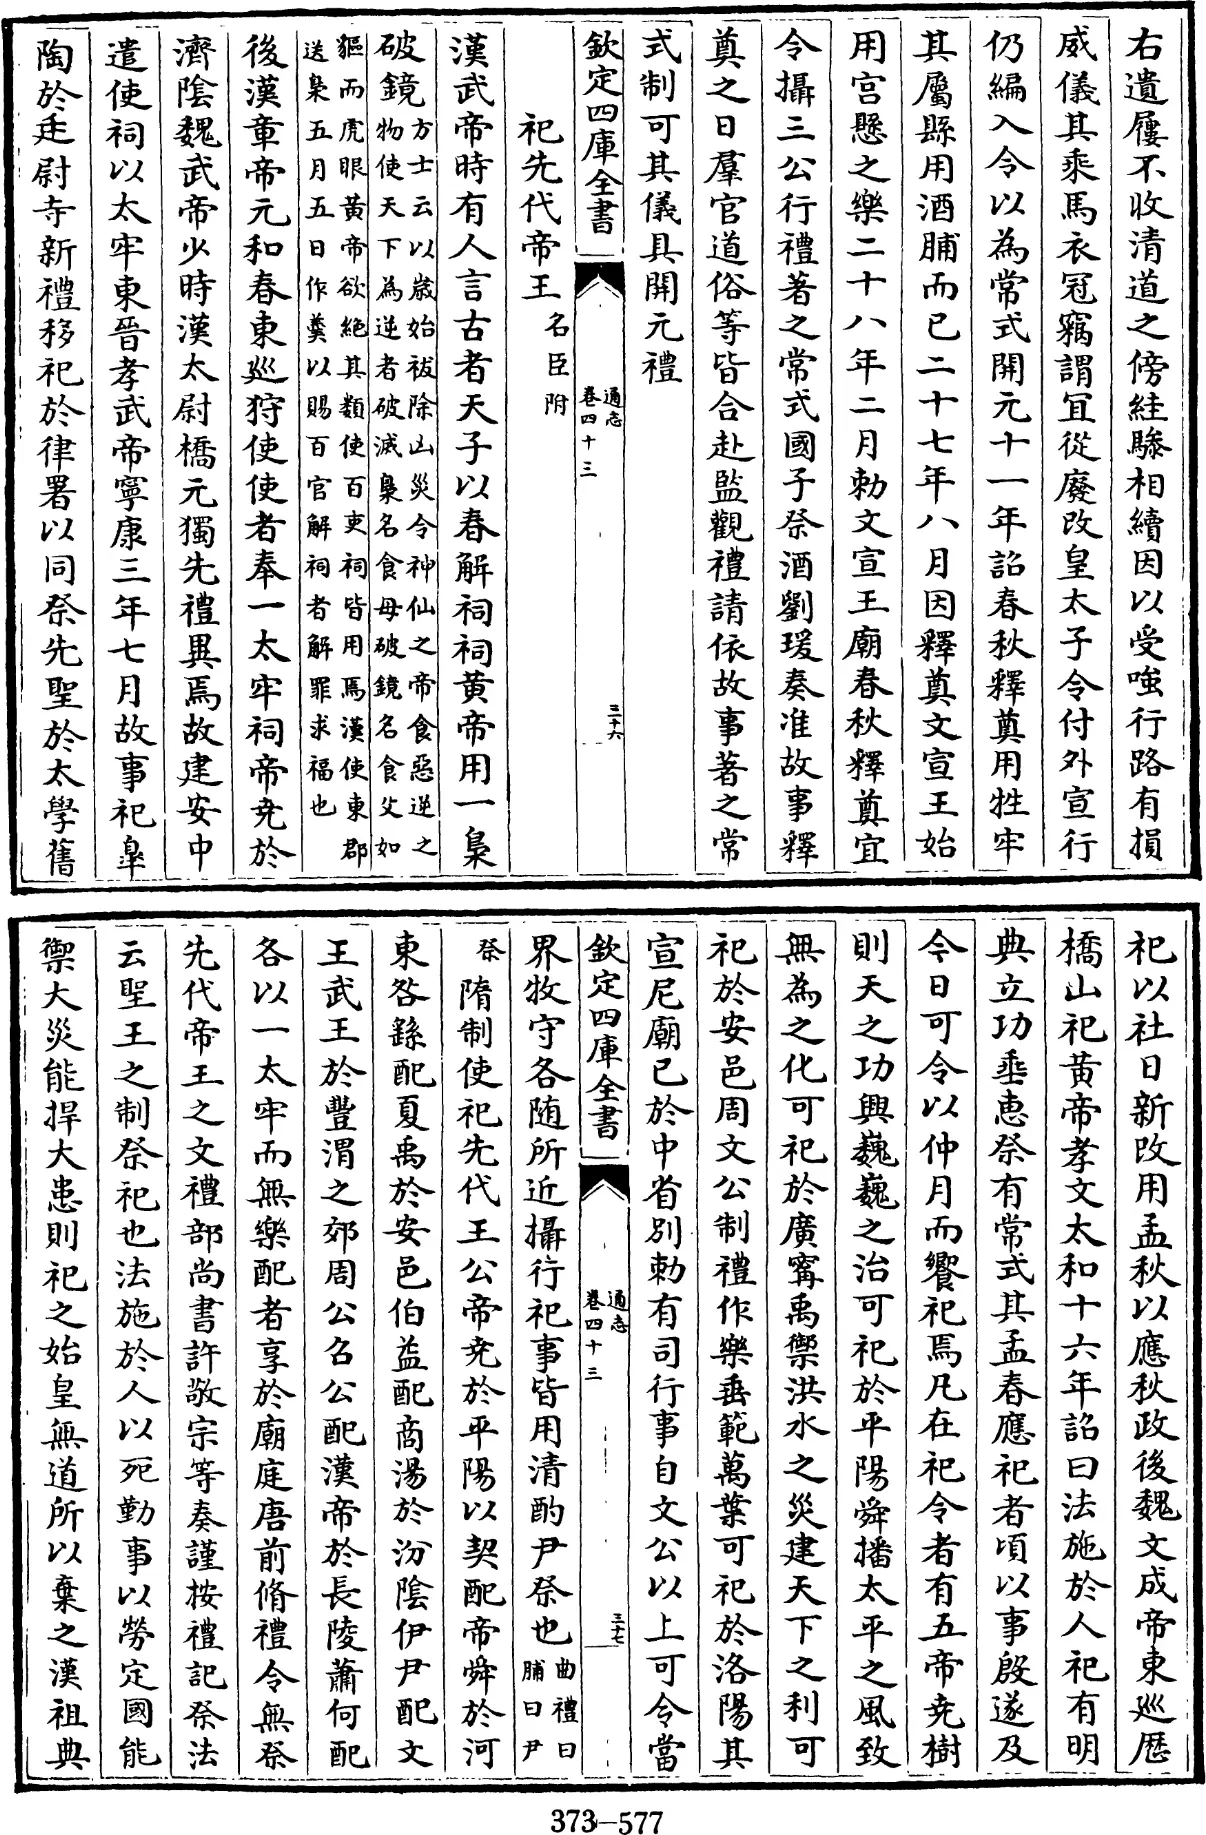 右遺屨不收清道之傍絓驂相續因以受嗤行路有損
威儀其乘馬衣冠竊謂宜從廢改皇太子令付外宣行
仍編入令以為常式開元十一年詔春秋釋奠用牲牢
其屬縣用酒脯而已二十七年八月因釋奠文宣王始
用宫懸之樂二十八年二月勅文宣王廟春秋釋奠宜
令攝三公行禮著之常式國子祭酒劉瑗奏准故事釋
奠之日羣官道俗等皆合赴監觀禮請依故事著之常
式制可其儀具開元禮
欽定四庫全書
通志
卷四十三
三十六
祀先代帝王名臣附
漢武帝時有人言古者天子以春解祠祠黄帝用一梟
破鏡方士云以歲始祓除山災令神仙之帝食惡逆之
物使天下為逆者破滅梟名食母破鏡名食父如
貙而虎眼黄帝欲絶其類使百吏祠皆用焉漢使東郡
送梟五月五日作羮以賜百官解祠者解罪求福也
後漢章帝元和春東廵狩使使者奉一太牢祠帝尭於
濟隂魏武帝少時漢太尉橋元獨先禮異焉故建安中
遣使祠以太牢東晉孝武帝寧康三年七月故事祀臯
陶於廷尉寺新禮移祀於律署以同祭先聖於太學舊
祀以社日新改用孟秋以應秋政後魏文成帝東廵歴
橋山祀黄帝孝文太和十六年詔曰法施於人祀有明
典立功垂惠祭有常式其孟春應祀者頃以事殷遂及
今日可令以仲月而饗祀焉凡在祀令者有五帝尭樹
則天之功興巍巍之治可祀於平陽舜播太平之風致
無為之化可祀於廣寗禹禦洪水之災建天下之利可
祀於安邑周文公制禮作樂垂範萬葉可祀於洛陽其
宣尼廟已於中省别勅有司行事自文公以上可令當
欽定四庫全書
通志
卷四十三
三十七
界牧守各随所近攝行祀事皆用清酌尹祭也曲禮曰
脯曰尹
祭隋制使祀先代王公帝尭於平陽以契配帝舜於河
東咎繇配夏禹於安邑伯益配商湯於汾隂伊尹配文
王武王於豐渭之郊周公召公配漢帝於長陵蕭何配
各以一太牢而無樂配者享於廟庭唐前脩禮令無祭
先代帝王之文禮部尚書許敬宗等奏謹按禮記祭法
云聖王之制祭祀也法施於人以死勤事以勞定國能
禦大災能捍大患則祀之始皇無道所以棄之漢祖典
373-577